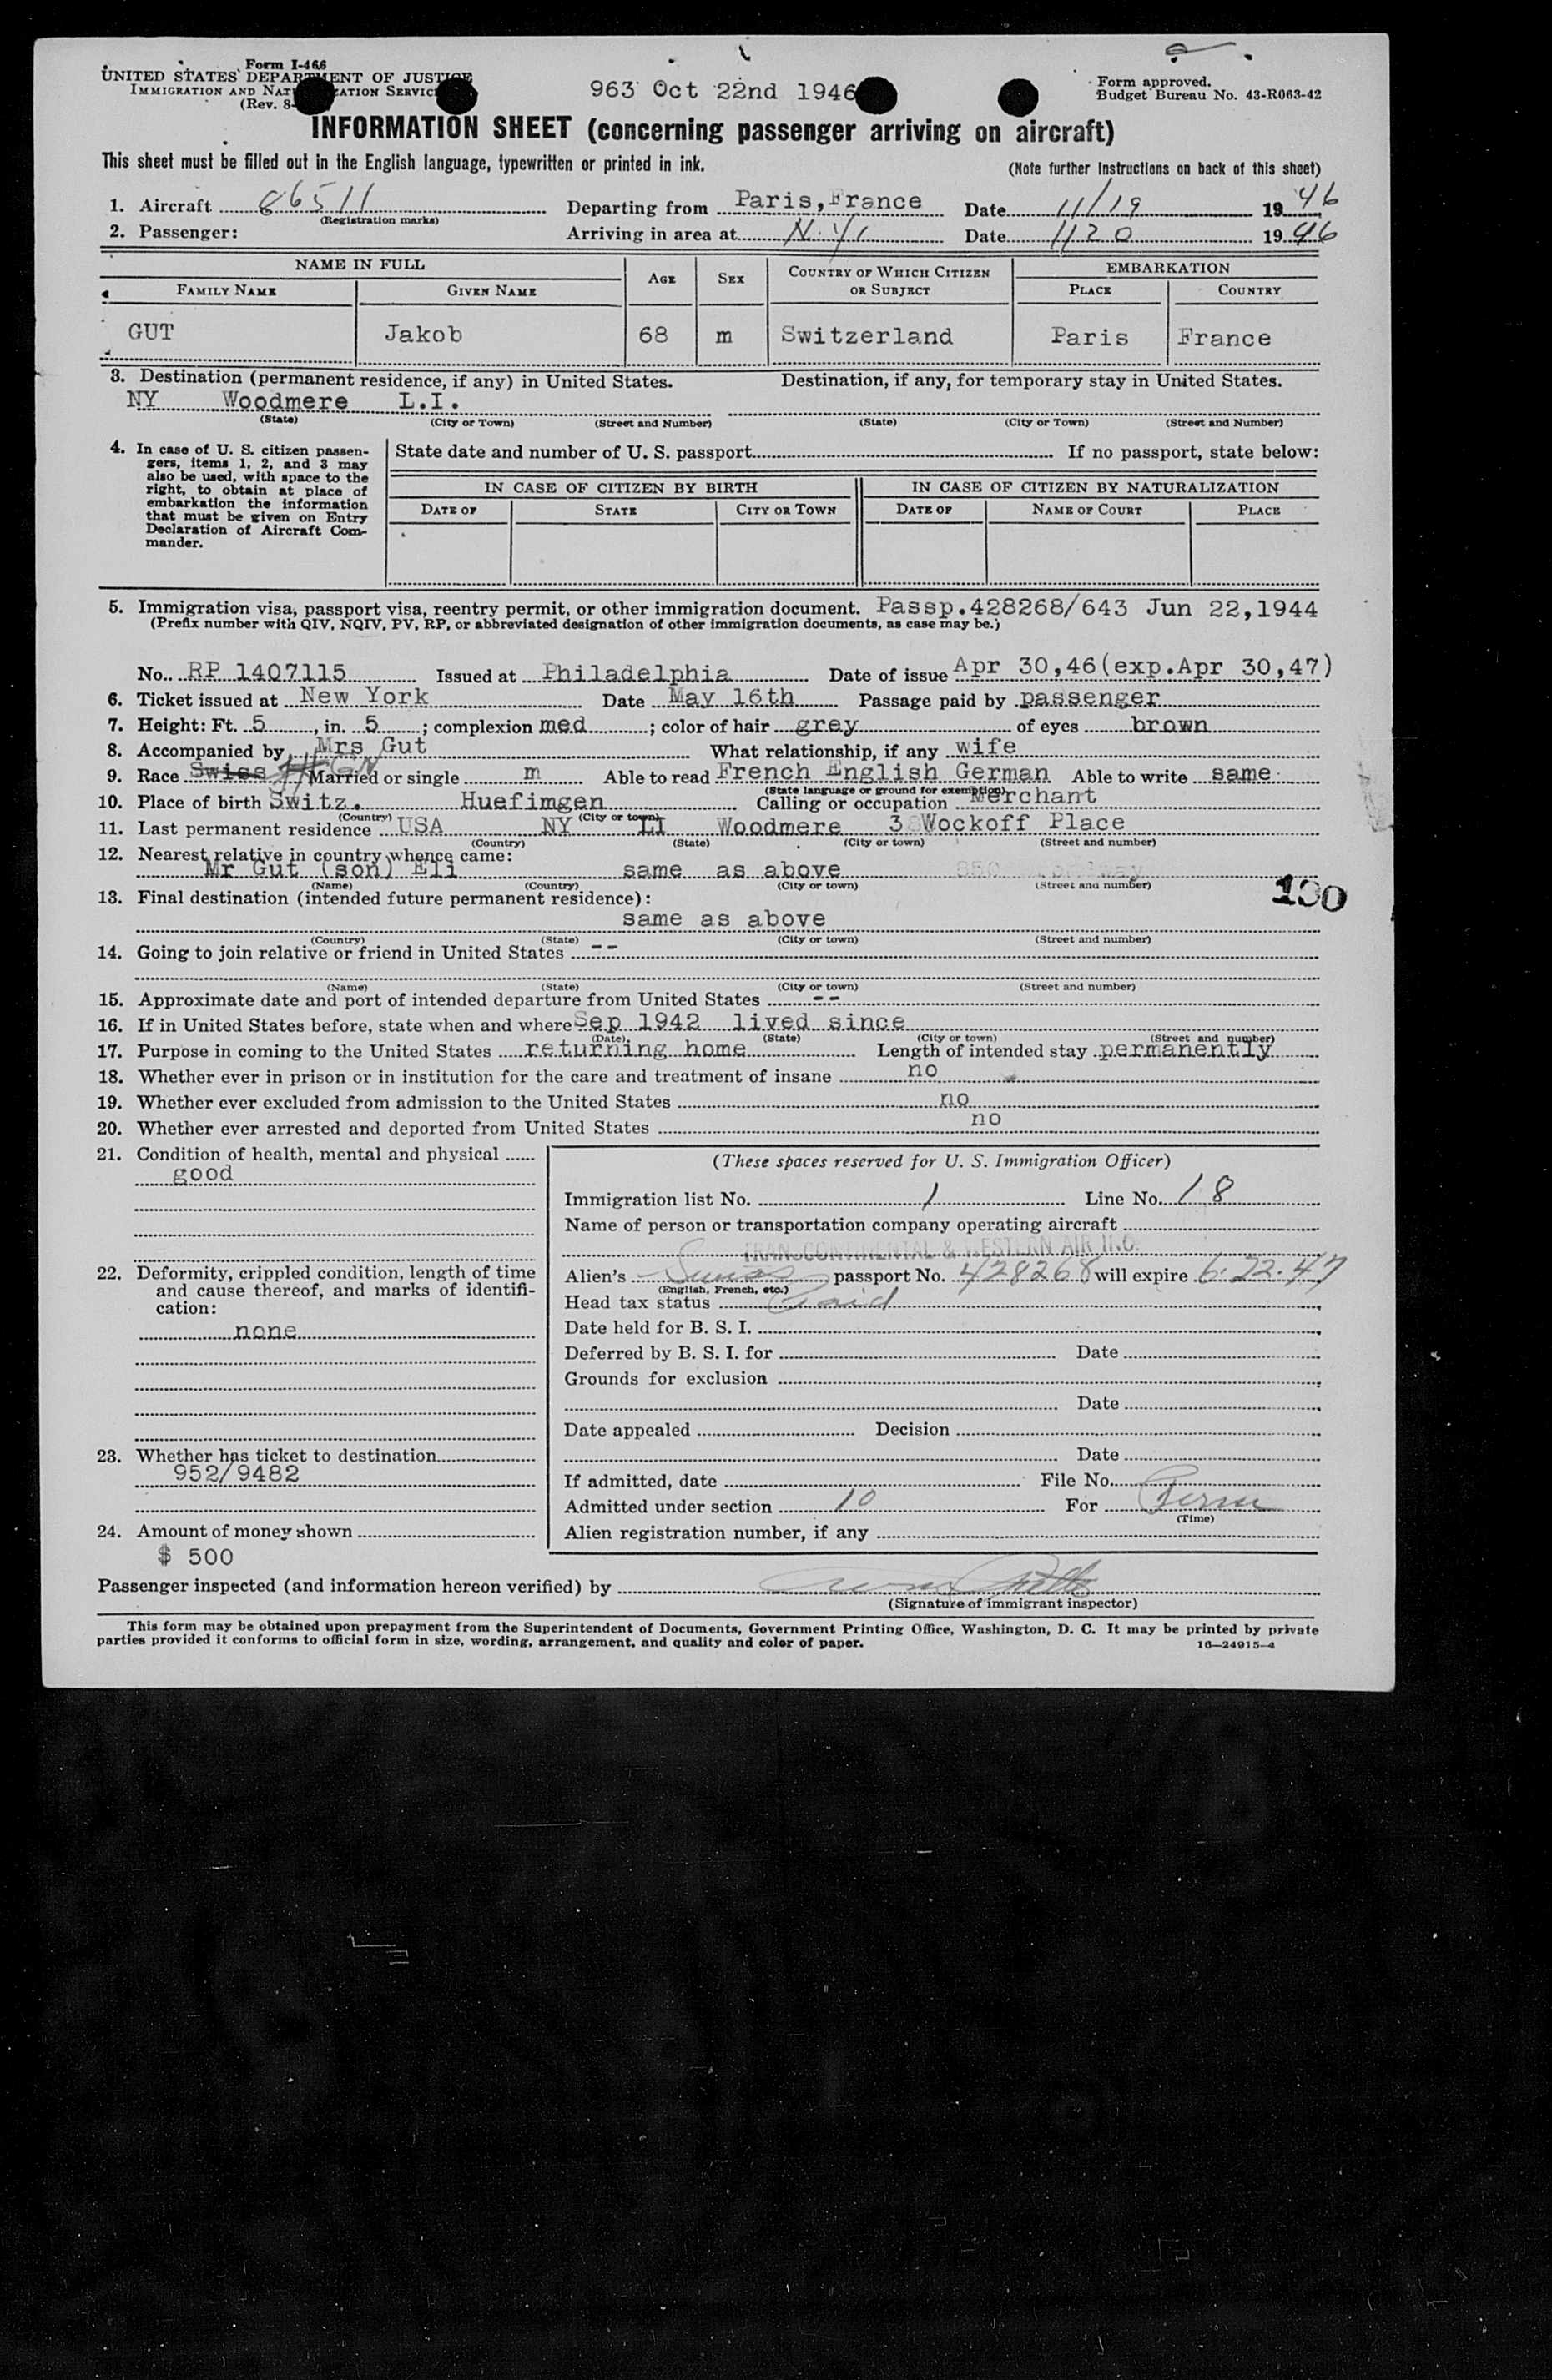 Form I-466
UNITED STATES DEPARTMENT OF JUSTICE
IMMIGRATION AND NAT ZATION SERVIC
(Rev. 8-
963 Oct 22nd 1946
Form approved.
Budget Bureau No. 43-R063-42
INFORMATION SHEET (concerning passenger arriving on aircraft)
This sheet must be filled out in the English language, typewritten or printed in ink.
(Note further instructions on back of this sheet)
1. Aircraft 86511 Departing from Paris,France Date 11/19 1946
(Registration marks)
2. Passenger: Arriving in area at N.Y. Date 1120 1946
NAME IN FULL AGE SEX COUNTRY OF WHICH CITIZEN OR SUBJECT EMBARKATION
FAMILY NAME GIVEN NAME PLACE COUNTRY
GUT Jakob 68 m Switzerland Paris France
3. Destination (permanent residence, if any) in United States. Destination, if any, for temporary stay in United States.
NY Woodmere L.I.
(State) (City or Town) (Street and Number) (State) (City or Town) (Street and Number)
4. In case of U. S. citizen passen-
gers, items 1, 2, and 3 may
also be used, with space to the
right, to obtain at place of
embarkation the information
that must be given on Entry
Declaration of Aircraft Com-
mander.
State date and number of U. S. passport If no passport, state below:
IN CASE OF CITIZEN BY BIRTH IN CASE OF CITIZEN BY NATURALIZATION
DATE OF STATE CITY OR TOWN DATE OF NAME OF COURT PLACE
5. Immigration visa, passport visa, reentry permit, or other immigration document. Passp.428268/643 Jun 22,1944
(Prefix number with QIV, NQIV, PV, RP, or abbreviated designation of other immigration documents, as case may be.)
No. RP 1407115 Issued at Philadelphia Date of issue Apr 30,46(exp.Apr 30,47)
6. Ticket issued at New York Date May 16th Passage paid by passenger
7. Height: Ft. 5, in. 5; complexion med; color of hair grey of eyes brown
8. Accompanied by Mrs Gut What relationship, if any wife
9. Race Swiss Married or single m Able to read French English German Able to write same
(State language or ground for exemption)
10. Place of birth Switz. Huefimgen Calling or occupation Merchant
(Country) (City or town)
11. Last permanent residence USA NY LI Woodmere 3 Wockoff Place
(Country) (State) (City or town) (Street and number)
12. Nearest relative in country whence came:
Mr Gut (son) Eli same as above
(Name) (Country) (City or town) (Street and number)
130
13. Final destination (intended future permanent residence):
same as above
(Country) (State) (City or town) (Street and number)
14. Going to join relative or friend in United States --
(Name) (State) (City or town) (Street and number)
15. Approximate date and port of intended departure from United States --
16. If in United States before, state when and where Sep 1942 lived since
(Date) (State) (City or town) (Street and number)
17. Purpose in coming to the United States returning home Length of intended stay permanently
18. Whether ever in prison or in institution for the care and treatment of insane no
19. Whether ever excluded from admission to the United States no
20. Whether ever arrested and deported from United States no
21. Condition of health, mental and physical
good
22. Deformity, crippled condition, length of time
and cause thereof, and marks of identifi-
cation:
none
23. Whether has ticket to destination
952/9482
24. Amount of money shown
$ 500
(These spaces reserved for U. S. Immigration Officer)
Immigration list No. 1 Line No. 18
Name of person or transportation company operating aircraft
TRANSCONTINENTAL & WESTERN AIR INC.
Alien's Swiss passport No. 428268 will expire 6.22.47
(English, French, etc.)
Head tax status Paid
Date held for B. S. I.
Deferred by B. S. I. for Date
Grounds for exclusion
Date
Date appealed Decision
Date
If admitted, date File No.
Admitted under section 10 For Perm
(Time)
Alien registration number, if any
Passenger inspected (and information hereon verified) by
(Signature of immigrant inspector)
This form may be obtained upon prepayment from the Superintendent of Documents, Government Printing Office, Washington, D. C. It may be printed by private
parties provided it conforms to official form in size, wording, arrangement, and quality and color of paper.
16—24915-4